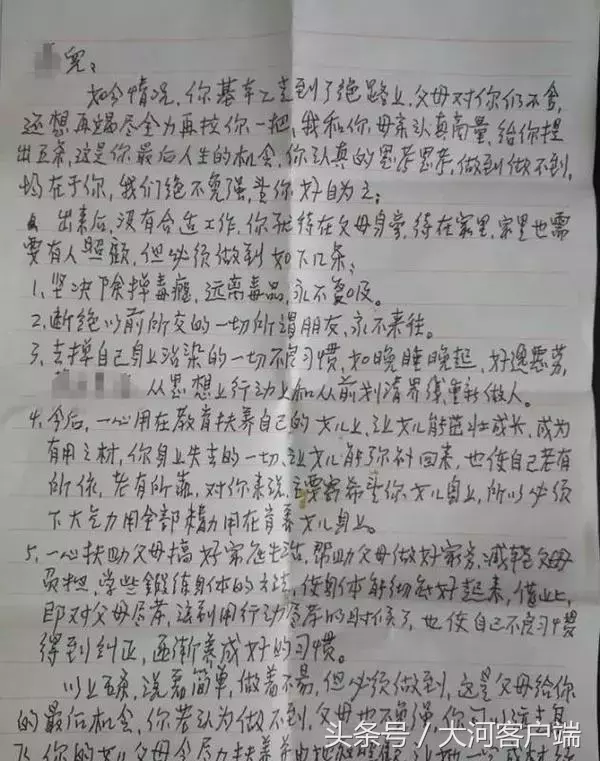 儿:
如今情况，你基本已走到了绝路上，父母对你仍不舍，
还想再竭尽全力再拉你一把，我和你母亲认真商量，给你提
出五条，这是你最后人生的机会，你认真的思考思考，做到做不到，
均在于你，我们绝不勉强，望你好自为之；
出来后，没有合适工作，你就待在父母身旁，待在家里，家里也需
要有人照顾，但必须做到如下几条；
1、坚决除掉毒瘾，远离毒品，永不复吸。
2、断绝以前所交的一切所谓朋友，永不来往。
3、去掉自己身上沾染的一切不良习惯，如晚睡晚起，好逸恶劳，
从思想上行动上和从前划清界线重新做人。
4、今后，一心用在教育扶养自己的女儿上，让女儿能茁壮成长，成为
有用之材，你身上失去的一切，让女儿能了你补回来，也使自己老有
所依，老有所靠，对你来说，主要寄希望你女儿身上，所以必须
下大气力用全部精力用在育养女儿身上。
5、一心扶助父母搞好家庭生活，帮助父母做好家务，减轻父母
负担，学些锻练身体的方法，使身体能彻底好起来，
即对父母尽孝，行动尽孝的时候了，也使自己不良习惯
得到纠正，逐渐养成好的习惯。
以上五条，说着简单，做着不易，但必须做到，这是父母给你
的最后机会，你若认为做不到，父母也不勉强，你可以远走
你的女儿父母会尽力扶养
头条号／大河客户端